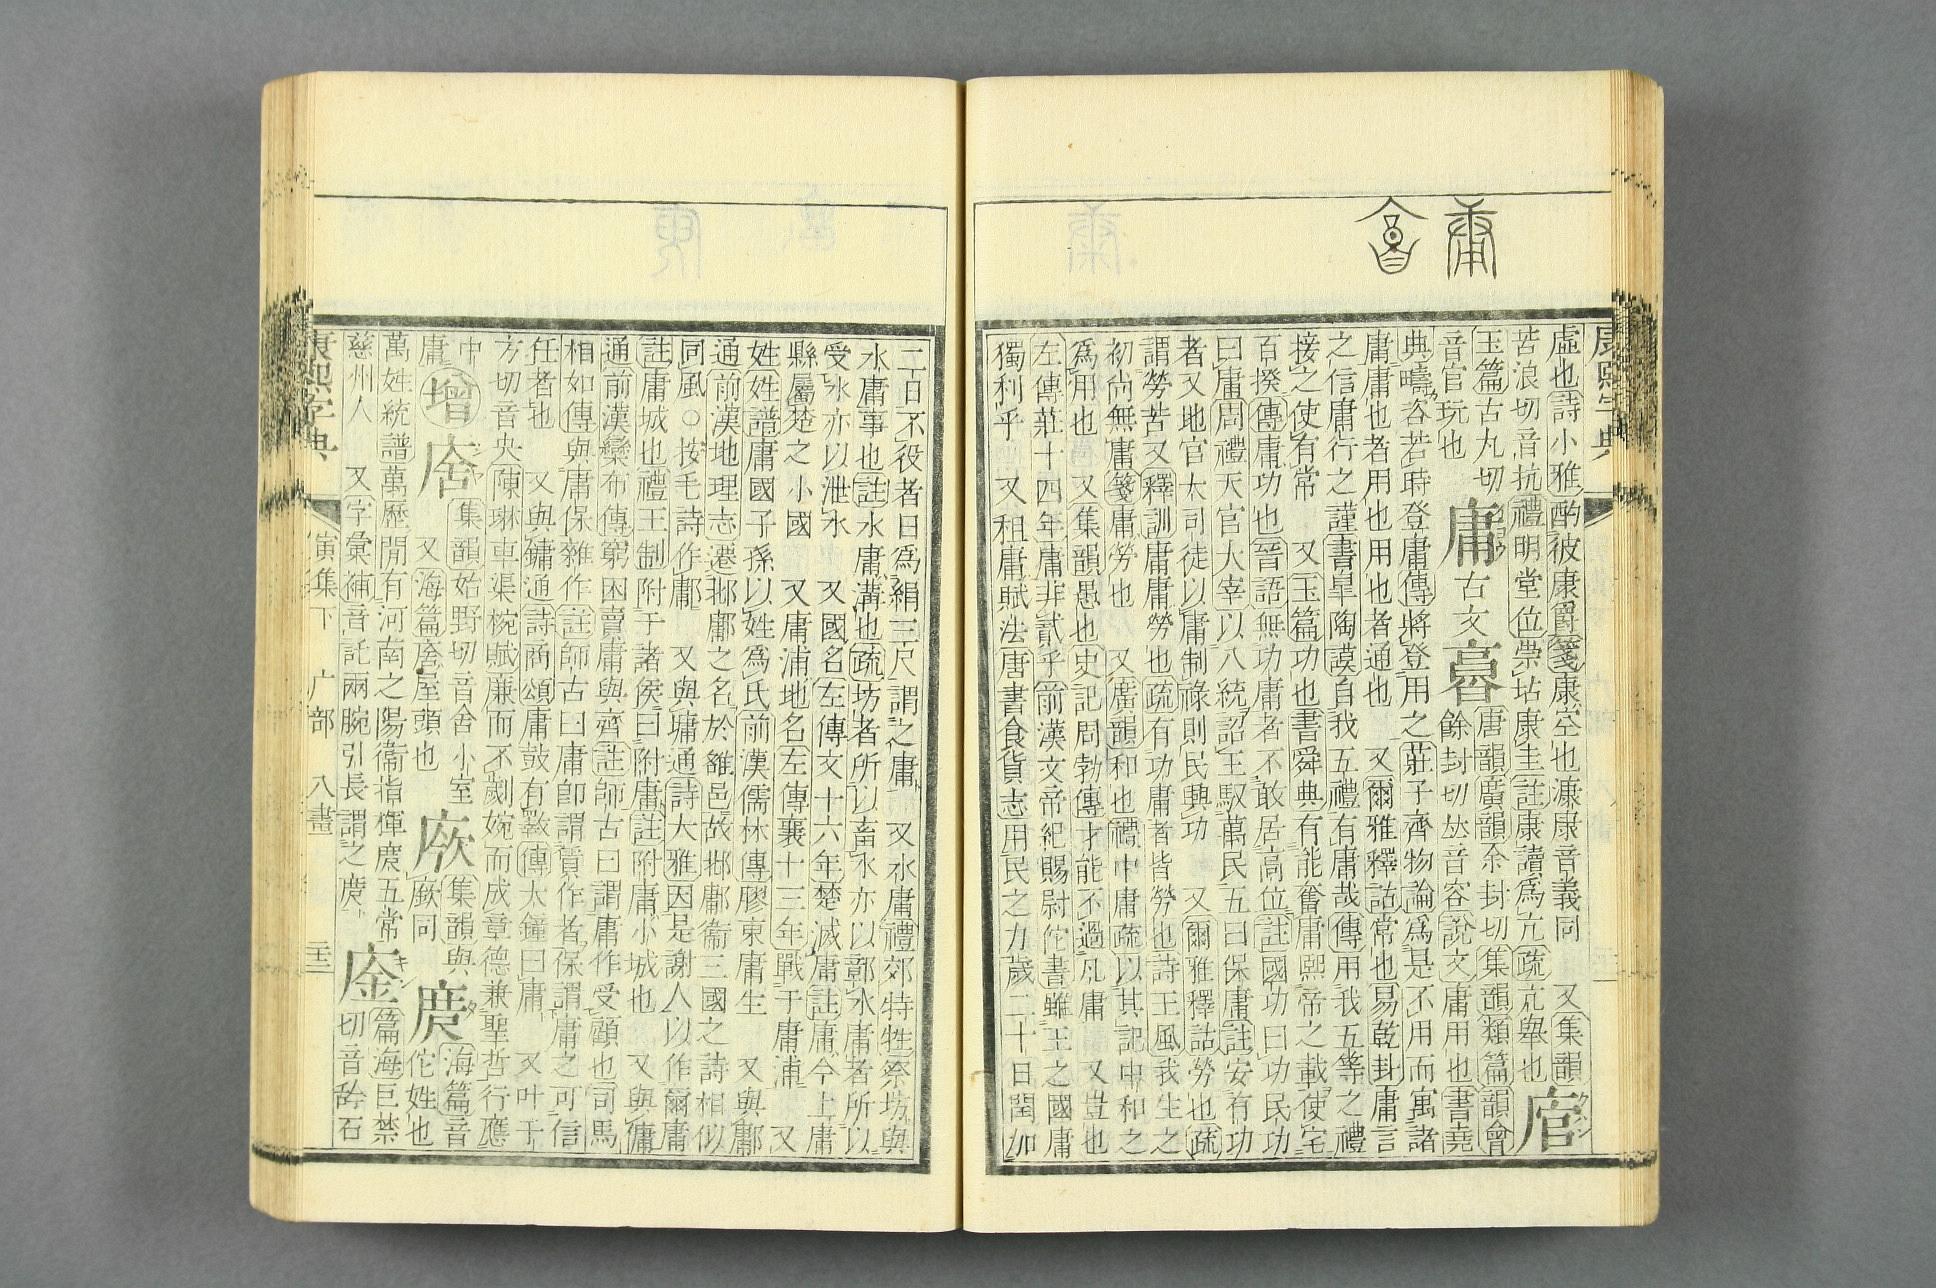 康熙字典
虛也詩小雅酌彼康爵箋康空也漮康音義同 又集韻
苦浪切音抗禮明堂位崇坫康圭註康讀爲亢疏亢舉也 㡉
玉篇古丸切 庸 古文 𠆌 唐韻廣韻余封切集韻類篇韻會
音官玩也 餘封切𠀤音容說文庸用也書堯
典疇咨若時登庸傳將登用之莊子齊物論爲是不用而寓諸
庸庸也者用也用也者通也 又爾雅釋詁常也易乾卦庸言
之信庸行之謹書臯陶謨自我五禮有庸哉傳用我五等之禮
接之使有常 又玉篇功也書舜典有能奮庸熙帝之載使宅
百揆傳庸功也晉語無功庸者不敢居高位註國功曰功民功
曰庸周禮天官大宰以八統詔王馭萬民五曰保庸註安有功
者又地官大司徒以庸制祿則民興功 又爾雅釋詁勞也疏
謂勞苦又釋訓庸庸勞也疏有功庸者皆勞也詩王風我生之
初尚無庸箋庸勞也 又廣韻和也禮中庸疏以其記中和之
爲用也 又集韻愚也史記周勃傳才能不過凡庸 又豈也
左傳莊十四年庸非貳乎前漢文帝紀賜尉佗書雖王之國庸
獨利乎 又租庸賦法唐書食貨志用民之力歲二十日閏加
二日不役者日爲絹三尺謂之庸 又水庸禮郊特牲祭坊與
水庸事也註水庸溝也疏坊者所以畜水亦以鄣水庸者所以
受水亦以泄水 又國名左傳文十六年楚滅庸註庸今上庸
縣屬楚之小國 又庸浦地名左傳襄十三年戰于庸浦 又
姓姓譜庸國子孫以姓爲氏前漢儒林傳膠東庸生 又與鄘
通前漢地理志遷邶鄘之名於雒邑故邶鄘衞三國之詩相似
同風○按毛詩作鄘 又與墉通詩大雅因是謝人以作爾庸
註庸城也禮王制附于諸侯曰附庸註附庸小城也 又與傭
通前漢欒布傳窮困賣庸與齊註師古曰謂庸作受顧也司馬
相如傳與庸保雜作註師古曰庸卽謂賃作者保謂庸之可信
任者也 又與鏞通詩商頌庸鼓有斁傳大鐘曰庸 又叶于
方切音央陳琳車渠椀賦廉而不劌婉而成章德兼聖哲行應
中 增 㡋 集韻始野切音舍小室
庸 又海篇㡋屋頭也 㡊 集韻與 㡀 海篇音
㡊同 佗姓也
萬姓統譜萬歷閒有河南之陽衞指揮㡀五常 𢈄 篇海巨禁
慈州人 又字彙補音託兩腕引長謂之㡀 切音㱃石
康熙字典 寅集下 广部 八畫 二十三